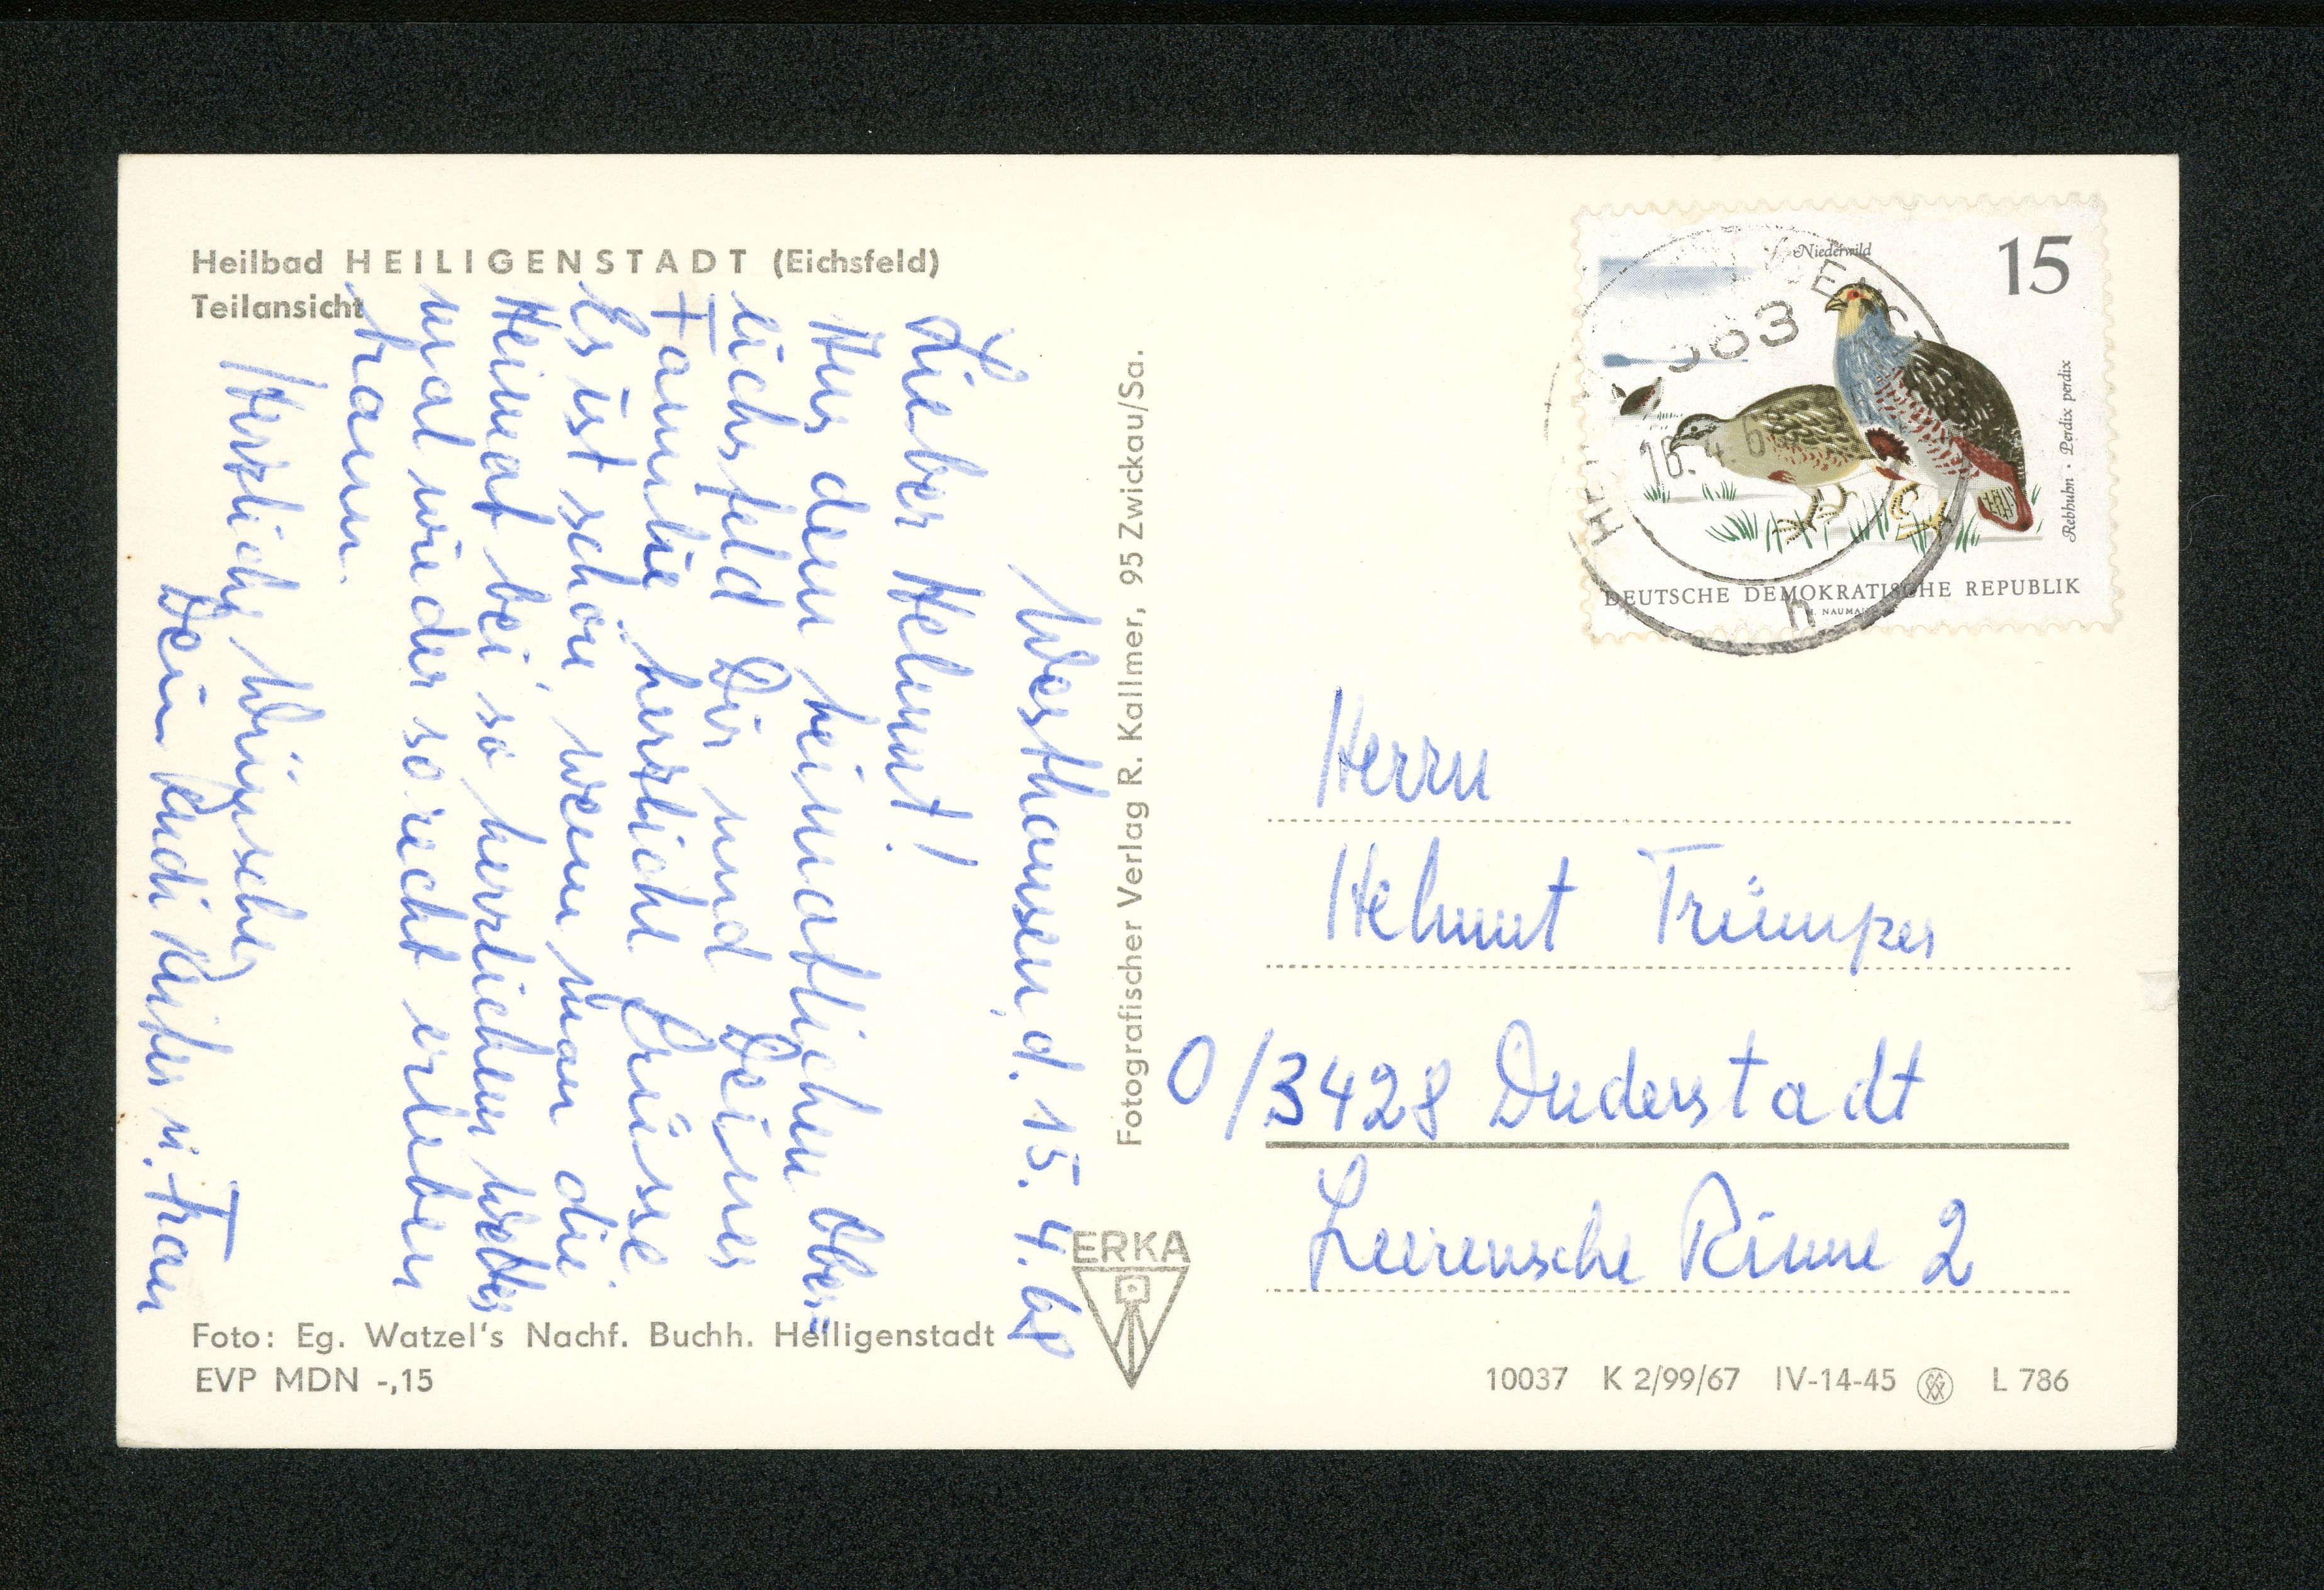 Heilbad HEILIGENSTADT (Eichsfeld)
Teilansicht
Westhausen, d. 15. 4. 68
Lieber Helmut!
Aus dem heimatlichen Ober=
eichsfeld Dir und Deiner
Familie herzliche Grüsse.
Es ist schön, wenn man die
Heimat bei so herrlichem Wetter
mal wieder so recht erleben
kann.
Herzliche Wünsche
Dein Rudi u. Frau
Foto: Eg. Watzel's Nachf. Buchh. Heiligenstadt
EVP MDN -,15
Fotografischer Verlag R. Kallmer, 95 Zwickau/Sa.
ERKA
Niederwild
15
Rebhuhn · Perdix perdix
DEUTSCHE DEMOKRATISCHE REPUBLIK
16.4.6
h
Herrn
Helmut Trümper
O/3428 Duderstadt
Leerensche Rinne 2
10037 K 2/99/67 IV-14-45 L 786